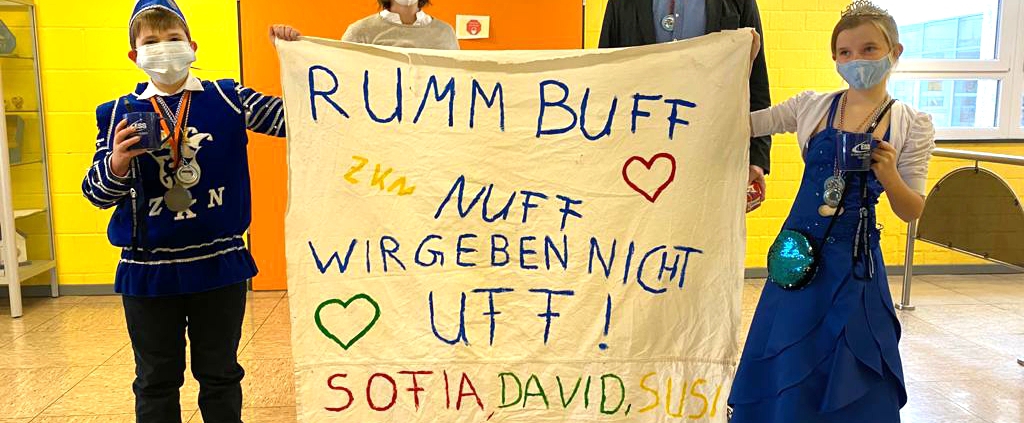 RUMM BUFF
ZKN
NUFF
WIR GEBEN NICHT
UFF!
SOFIA, DAVID, SUSI
ZKN
ESS
ESS